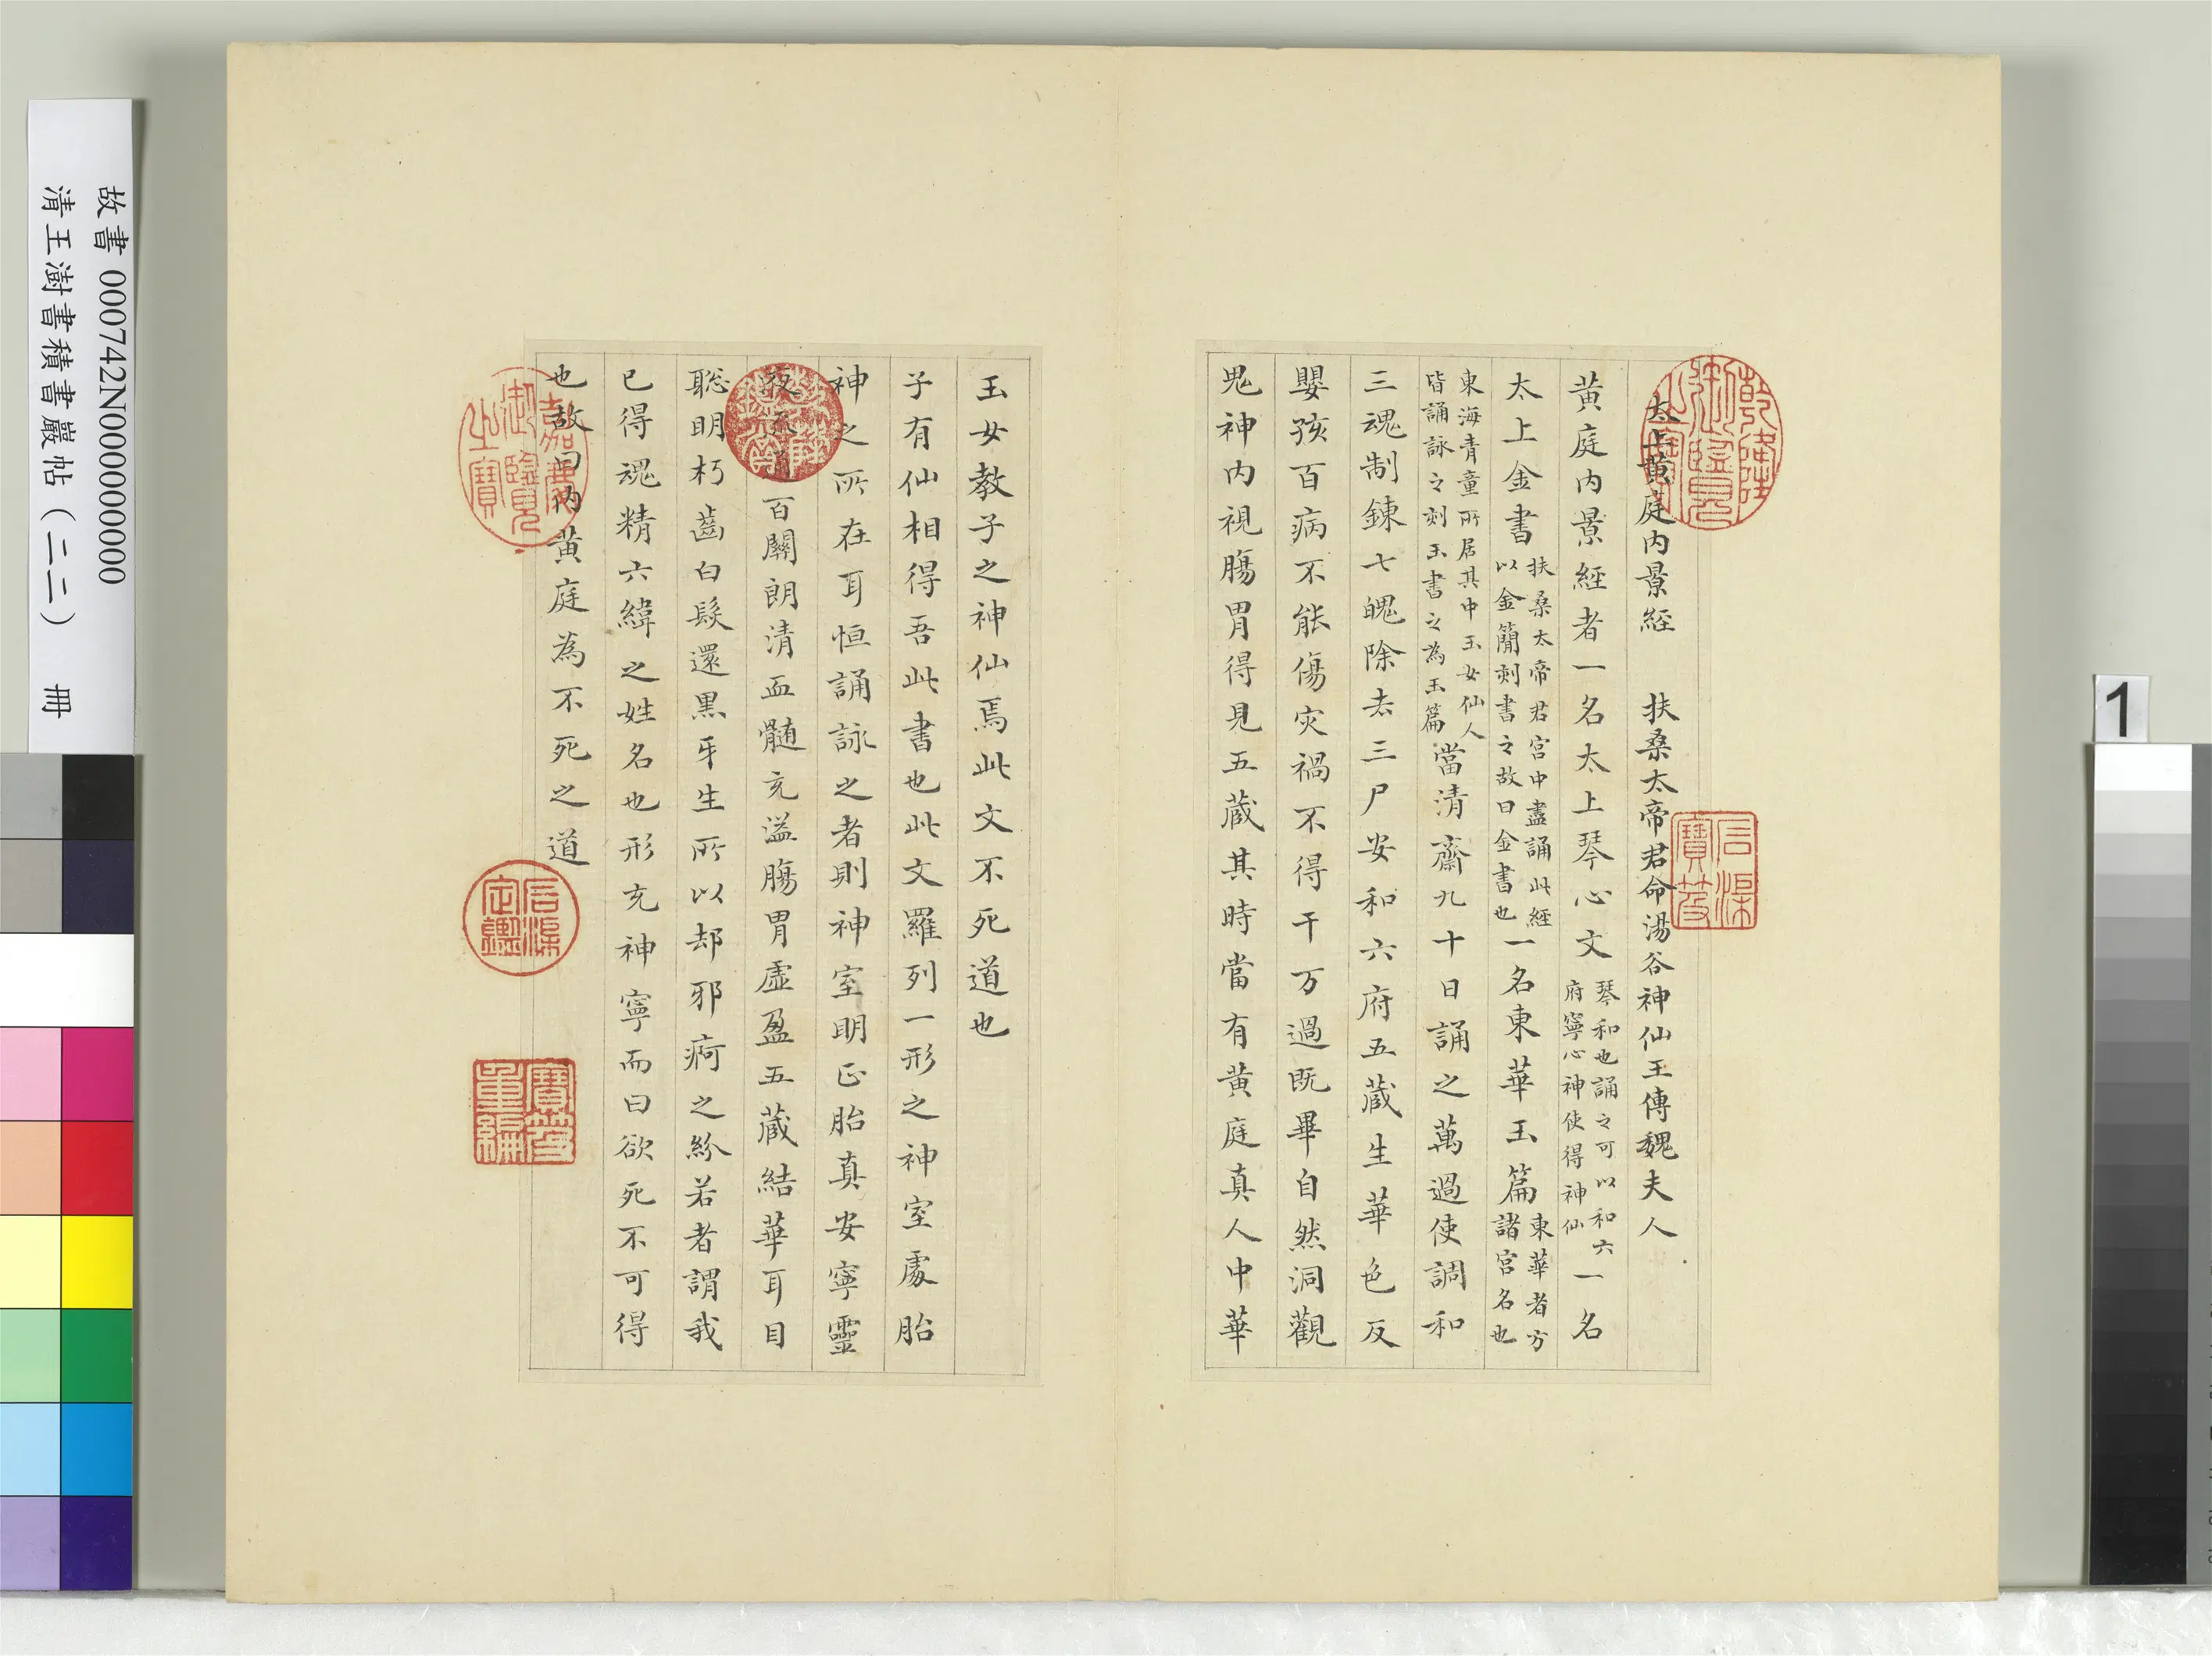 故書 000742N000000000
清王澍書積書巖帖（二二） 冊
1
太上黃庭內景經 扶桑太帝君命湯谷神仙王傳魏夫人
黃庭內景經者一名太上琴心文琴和也誦之可以和六府寧心神使得神仙一名
太上金書扶桑太帝君宮中盡誦此經以金簡刻書之故曰金書也一名東華玉篇東華者方諸宮名也
東海青童所居其中玉女仙人皆誦詠之刻玉書之為玉篇當清齋九十日誦之萬過使調和
三魂制鍊七魄除去三尸安和六府五藏生華色反
嬰孩百病不能傷灾禍不得干万過既畢自然洞觀
鬼神內視腸胃得見五藏其時當有黃庭真人中華
玉女教子之神仙焉此文不死道也
子有仙相得吾此書也此文羅列一形之神室處胎
神之所在耳恒誦詠之者則神室明正胎真安寧靈
百關朗清血髓充溢腸胃虛盈五藏結華耳目
聡明朽齒白髮還黑牙生所以却邪痾之紛若者謂我
已得魂精六緯之姓名也形充神寧而曰欲死不可得
也故曰內黃庭為不死之道
乾隆御覽之寶
石渠寶笈
嘉慶御覽之寶
石渠定鑑
寶笈重編